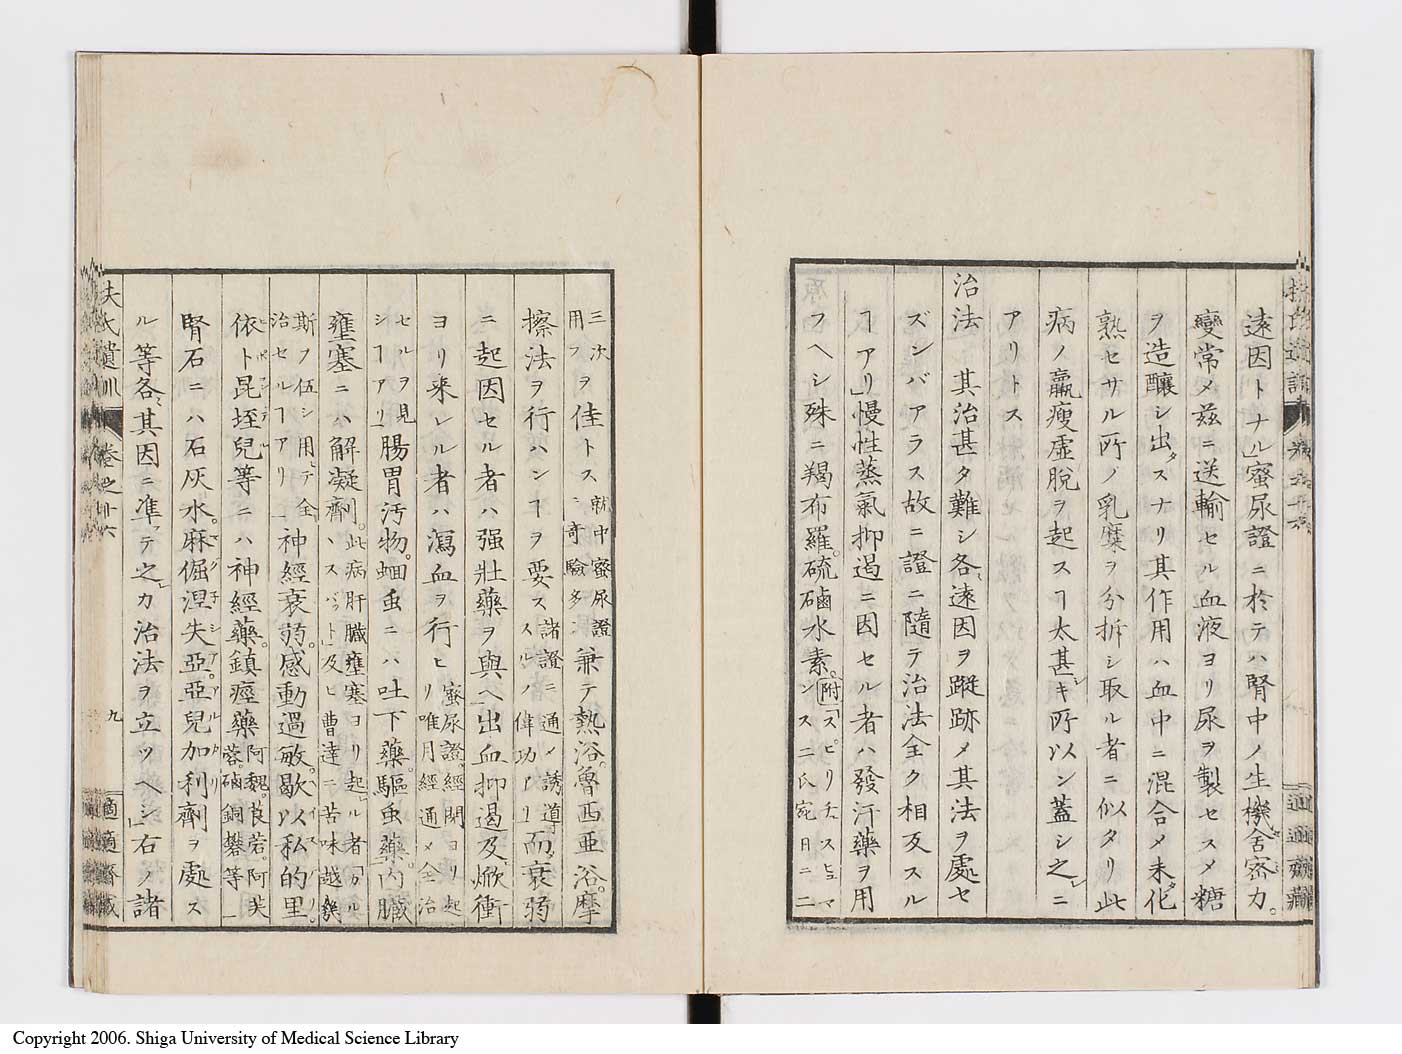 遠因トナル」蜜尿證ニ於テハ腎中ノ生機舍密力。
變常メ茲ニ送輸セル血液ヨリ尿ヲ製セスメ糖
ヲ造釀シ出スナリ其作用ハ血中ニ混合メ未タ化
熟セサル所ノ乳糜ヲ分拆シ取ル者ニ似タリ此
病ノ羸瘦虛脫ヲ起スヿ太甚シキ所以ン蓋シ之ニ
アリトス
治法 其治甚タ難シ各遠因ヲ蹤跡メ其法ヲ處セ
ズンバアラス故ニ證ニ隨テ治法全ク相反スル
ヿアリ」慢性蒸氣抑遏ニ因セル者ハ發汗藥ヲ用
フヘシ殊ニ羯布羅。硫鹵水素。附「スピリチスミマ
ンスニ氏宛日ニ二
三次
用フヲ佳トス就中蜜尿證
ニ奇驗多シ兼テ熱浴。魯西亞浴。摩
擦法ヲ行ハンヿヲ要ス諸證ニ通メ誘導
スルノ偉功アリ而衰弱
ニ起因セル者ハ强壯藥ヲ與ヘ出血抑遏及焮衝
ヨリ來レル者ハ瀉血ヲ行ヒ蜜尿證經閉ヨリ起
リ唯月經通メ全治
セルヲ見
シヿアリ」腸胃汚物。蛔虫ニハ吐下藥。驅虫藥」內臟
壅塞ニハ解凝劑。此病肝臟壅塞ヨリ起ル者「カル
ハスバット」及ヒ曹達ニ苦味越幾
斯ヲ伍シ用ヒテ全
治セルヿアリ」神經衰弱。感動過敏。歇以私的里
依卜昆垤兒等ニハ神經藥。鎮痙藥阿魏。莨菪。阿芙
蓉。硇銅礬等」
腎石ニハ石灰水。麻倔涅失亞。亞兒加利劑ヲ處ス
ル等各其因ニ準テ之カ治法ヲ立ツヘシ」右ノ諸
扶氏遺訓
卷之十六
九
適適齋藏
Copyright 2006. Shiga University of Medical Science Library